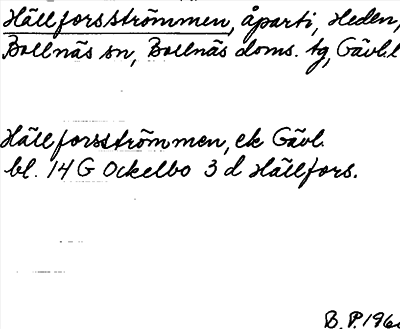 Hällforsströmmen, åparti, Heden,
Bollnäs sn, Bollnäs doms. tg, Gävl. l
Hällforsströmmen, ek Gävl.
bl. 14 G Ockelbo 3 d Hällfors.
B. P. 196